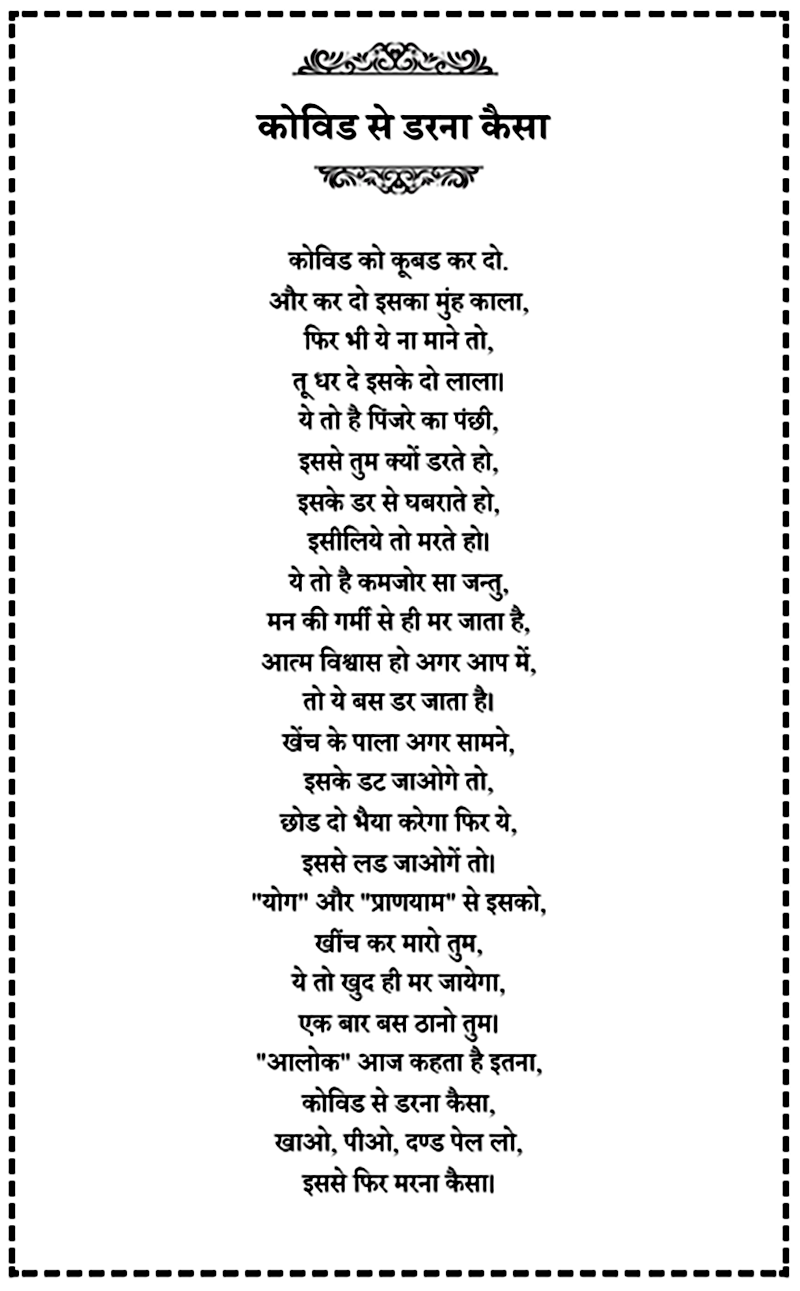 कोविड से डरना कैसा
कोविड को कूबड कर दो.
और कर दो इसका मुंह काला,
फिर भी ये ना माने तो,
तू धर दे इसके दो लाला।
ये तो है पिंजरे का पंछी,
इससे तुम क्यों डरते हो,
इसके डर से घबराते हो,
इसीलिये तो मरते हो।
ये तो है कमजोर सा जन्तु,
मन की गर्मी से ही मर जाता है,
आत्म विश्वास हो अगर आप में,
तो ये बस डर जाता है।
खेंच के पाला अगर सामने,
इसके डट जाओगे तो,
छोड दो भैया करेगा फिर ये,
इससे लड जाओगें तो।
"योग" और "प्राणयाम" से इसको,
खींच कर मारो तुम,
ये तो खुद ही मर जायेगा,
एक बार बस ठानो तुम।
"आलोक" आज कहता है इतना,
कोविड से डरना कैसा,
खाओ, पीओ, दण्ड पेल लो,
इससे फिर मरना कैसा।